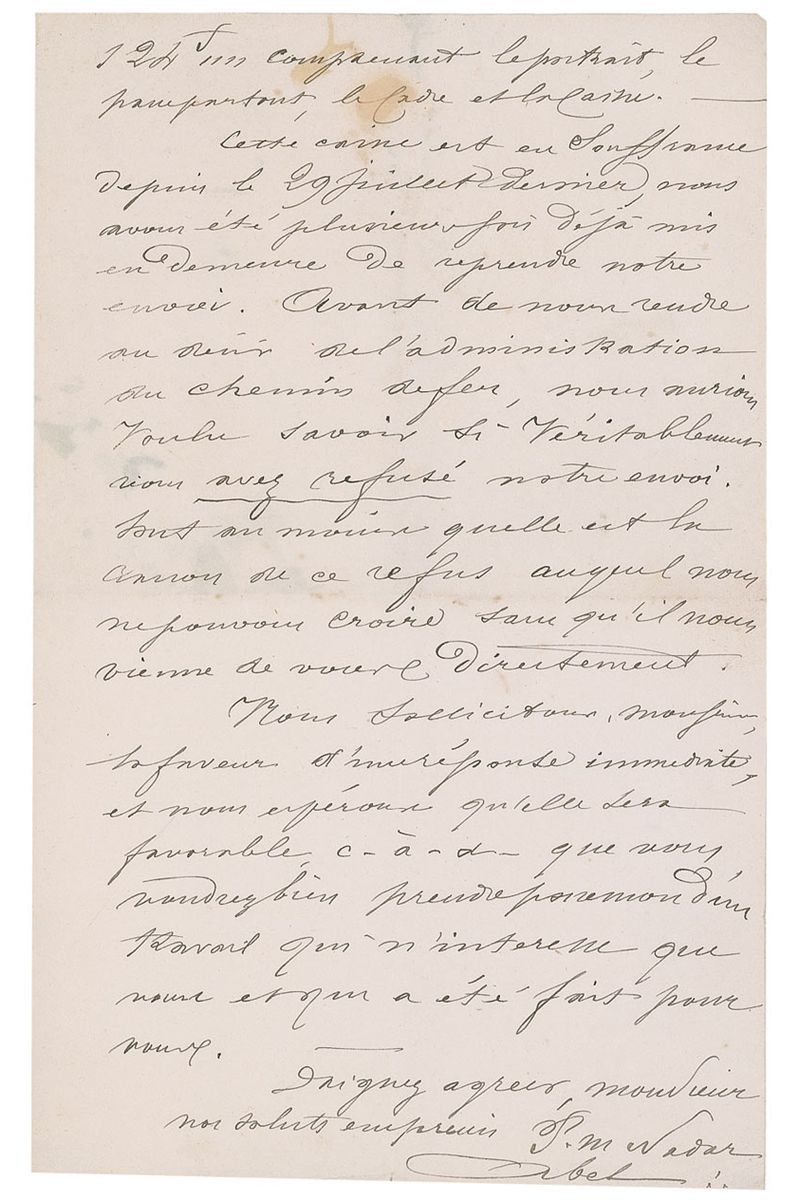 124 f comprenant le portrait, le
passepartout, le Cadre et la Caisse. —
Cette caisse est en Souffrance
depuis le 29 Juillet Dernier, nous
avons été plusieurs fois Déjà mis
en Demeure De reprendre notre
envoi. Avant de nous rendre
au désir de l'administration
du chemin de fer, nous aurions
Voulu savoir si Véritablement
vous avez refusé notre envoi.
tout au moins quelle est la
raison de ce refus auquel nous
ne pouvons croire sans qu'il nous
vienne de vous Directement.
Nous sollicitons, monsieur,
la faveur d'une réponse immediate,
et nous espérons qu'elle sera
favorable, c-à-d- que vous
voudrez bien prendre possession d'un
travail qui n'interesse que
vous et qui a été fait pour
vous.
Daignez agréer, monsieur
nos saluts empressés P. m Nadar
Abel